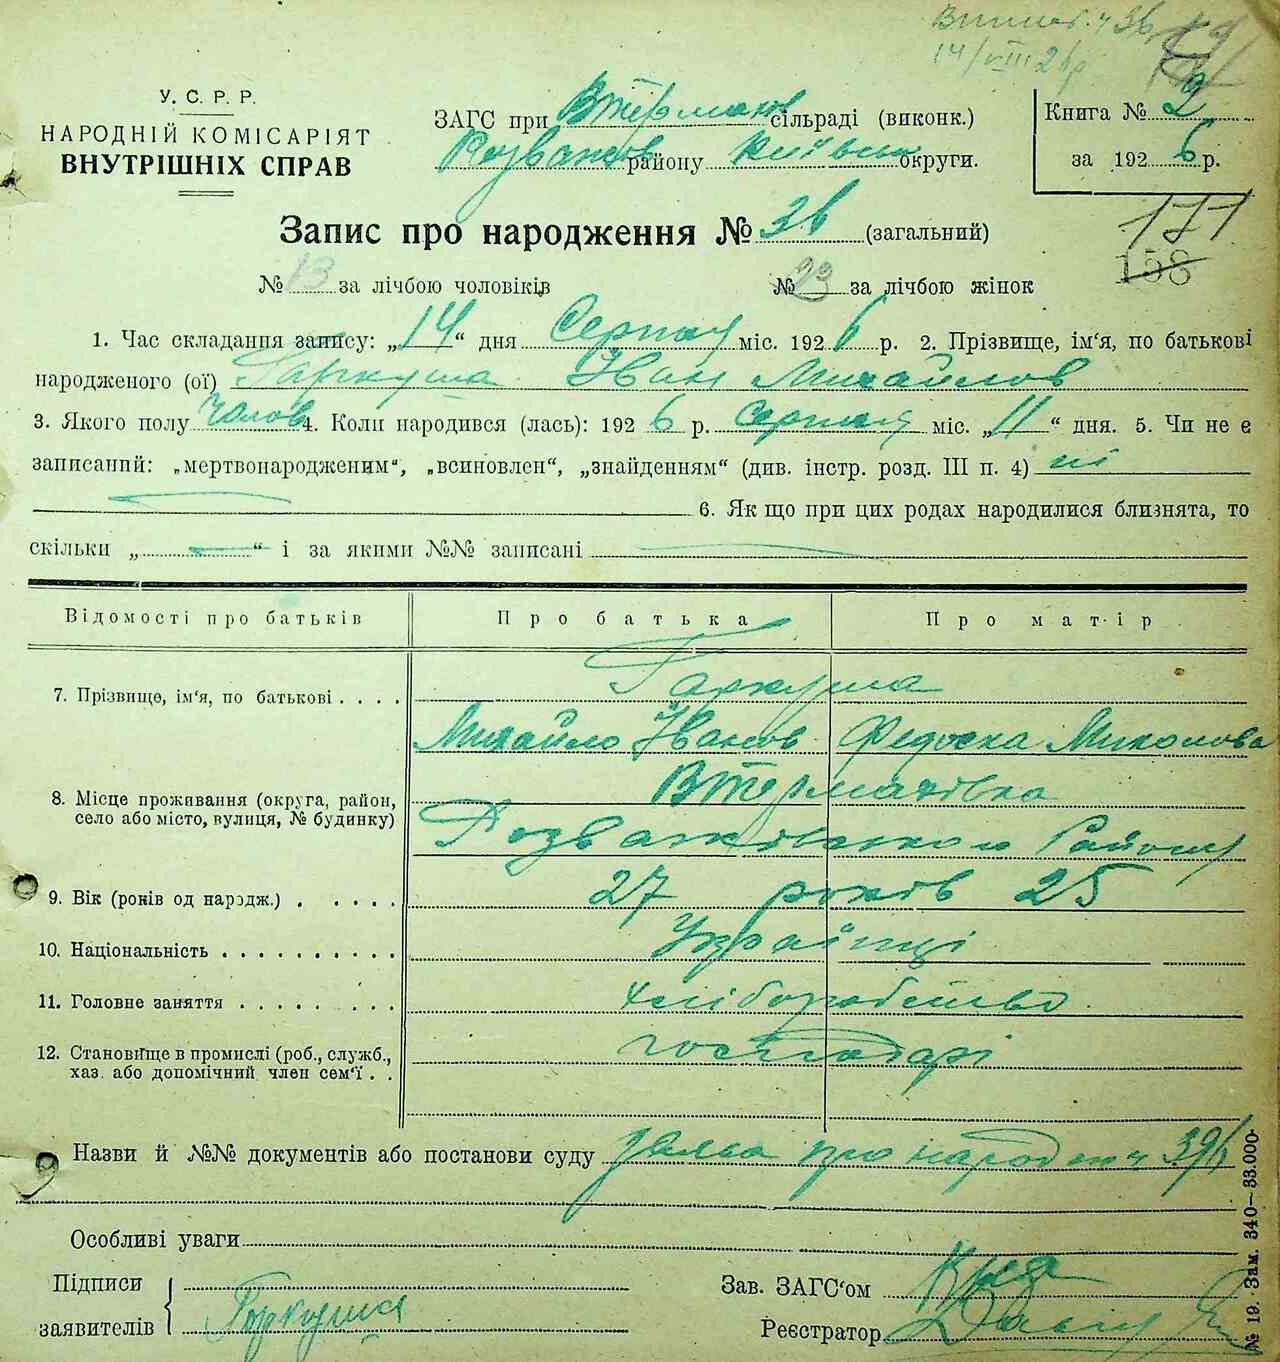 Випис. ч 36
14/VIII 26р
У. С. Р. Р.
НАРОДНІЙ КОМІСАРІЯТ
ВНУТРІШНІХ СПРАВ
ЗАГС при Втермахов сільраді (виконк.)
Розважов району Київськ округи.
Книга № 2
за 1926 р.
Запис про народження № 36 (загальний)
177
158
№ 13 за лічбою чоловіків № 23 за лічбою жінок
1. Час складання запису: „14“ дня Серпня міс. 1926 р. 2. Прізвище, ім‘я, по батькові
народженого (ої) Гаркуша Іван Михайлов
3. Якого полу чолов 4. Коли народився (лась): 1926 р. серпня міс. „11“ дня. 5. Чи не є
записаний: „мертвонародженим“, „всиновлен“, „знайденням“ (див. інстр. розд. III п. 4) ні
6. Як що при цих родах народилися близнята, то
скільки „ “ і за якими №№ записані
Відомості про батьків Про батька Про матір
7. Прізвище, ім‘я, по батькові . . . . Гаркуша
Михайло Іванов Федоска Миколова
8. Місце проживання (округа, район, Втермахівка
село або місто, вулиця, № будинку) Розважівського Району
9. Вік (років од народж.) . . . . . 27 років 25
10. Національність . . . . . . . . . . Українці
11. Головне заняття . . . . . . . . хліборобство
12. Становище в промислі (роб., служб., господарі
хаз. або допомічний член сем‘ї . .
Назви й №№ документів або постанови суду заява про народжен ч 396
Особливі уваги
Підписи Зав. ЗАГС‘ом
заявителів Гаркуша Реєстратор
№ 19. Зам. 340—33.000.